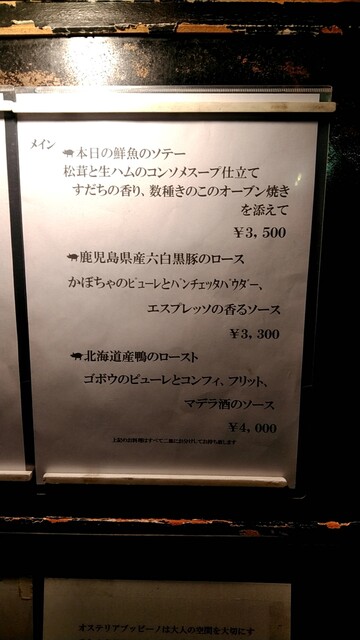 メイン
本日の鮮魚のソテー
松茸と生ハムのコンソメスープ仕立て
すだちの香り、数種きのこのオーブン焼き
を添えて
¥3,500
鹿児島県産六白黒豚のロース
かぼちゃのピューレとパンチェッタパウダー、
エスプレッソの香るソース
¥3,300
北海道産鴨のロースト
ゴボウのピューレとコンフィ、フリット、
マデラ酒のソース
¥4,000
上記のお料理はすべて二皿にお分けしてお持ち致します
オステリアブッピーノは大人の空間を大切にす